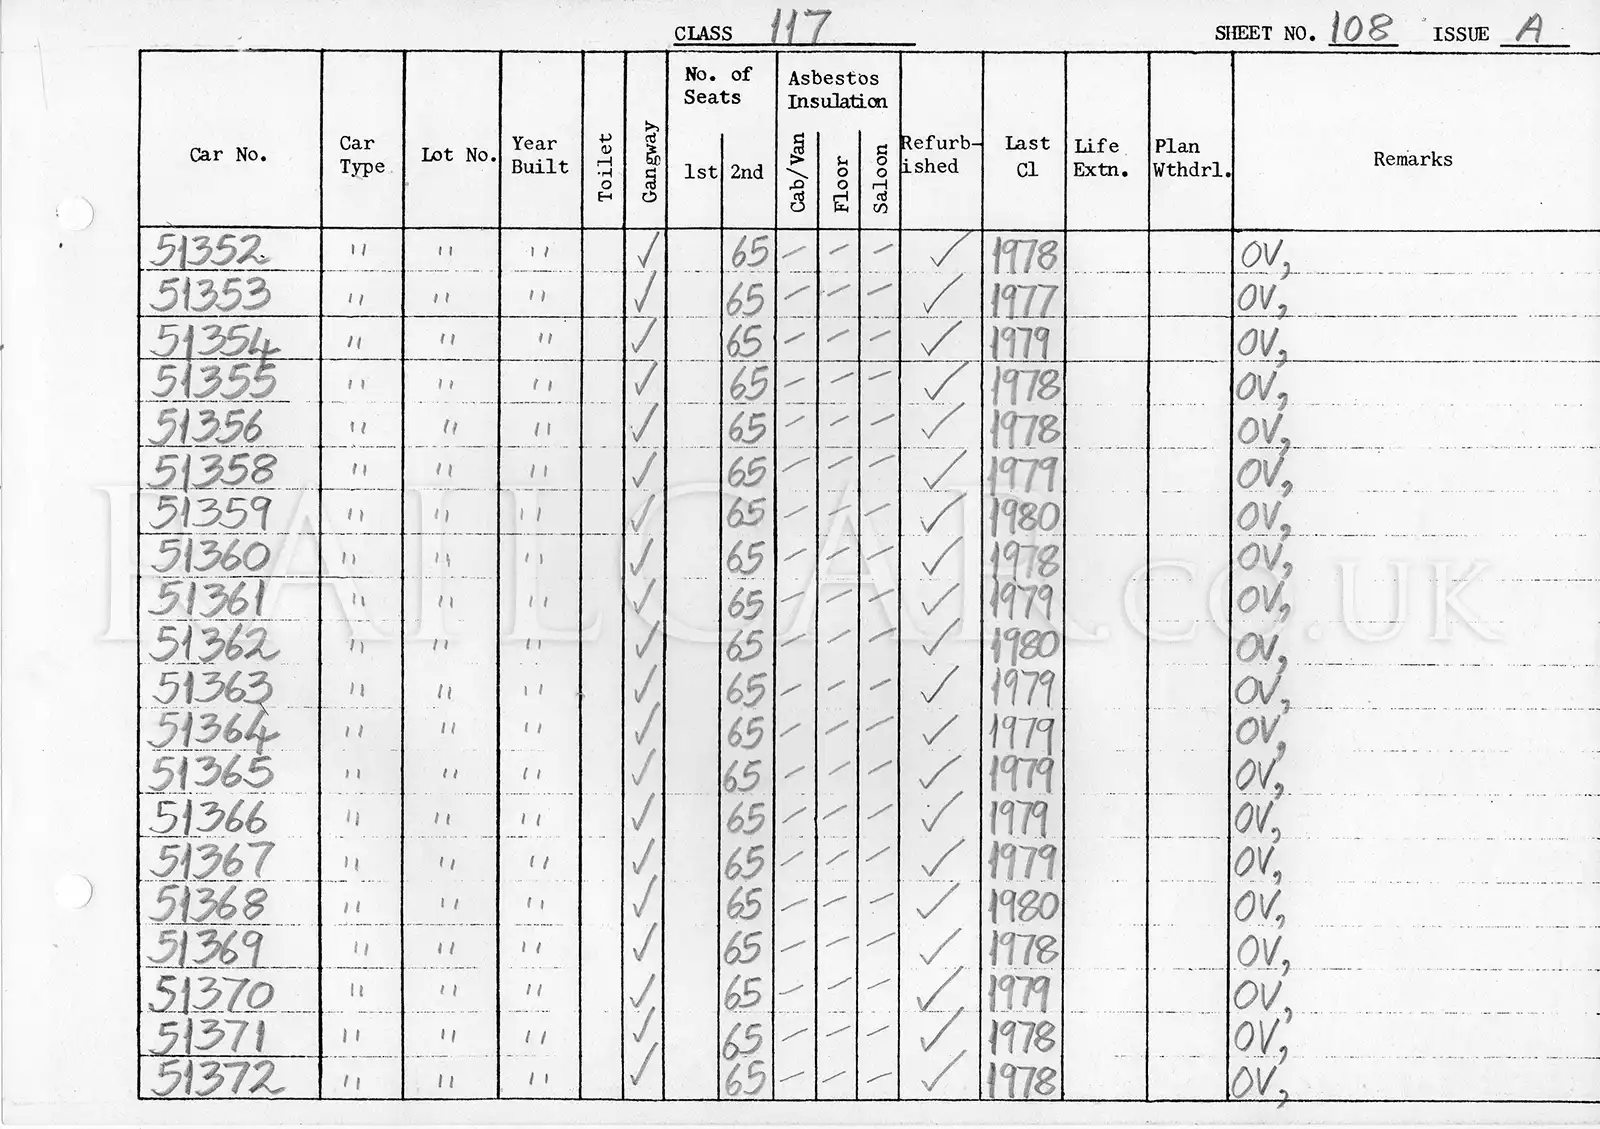 CLASS 117 SHEET NO. 108 ISSUE A
Car No. Car Type Lot No. Year Built Toilet Gangway No. of Seats 1st 2nd Asbestos Insulation Cab/Van Floor Saloon Refurb-ished Last Cl Life Extn. Plan Wthdrl. Remarks
51352 " " " ✓ 65 – – – ✓ 1978 OV,
51353 " " " ✓ 65 – – – ✓ 1977 OV,
51354 " " " ✓ 65 – – – ✓ 1979 OV,
51355 " " " ✓ 65 – – – ✓ 1978 OV,
51356 " " " ✓ 65 – – – ✓ 1978 OV,
51358 " " " ✓ 65 – – – ✓ 1979 OV,
51359 " " " ✓ 65 – – – ✓ 1980 OV,
51360 " " " ✓ 65 – – – ✓ 1978 OV,
51361 " " " ✓ 65 – – – ✓ 1979 OV,
51362 " " " ✓ 65 – – – ✓ 1980 OV,
51363 " " " ✓ 65 – – – ✓ 1979 OV,
51364 " " " ✓ 65 – – – ✓ 1979 OV,
51365 " " " ✓ 65 – – – ✓ 1979 OV,
51366 " " " ✓ 65 – – – ✓ 1979 OV,
51367 " " " ✓ 65 – – – ✓ 1979 OV,
51368 " " " ✓ 65 – – – ✓ 1980 OV,
51369 " " " ✓ 65 – – – ✓ 1978 OV,
51370 " " " ✓ 65 – – – ✓ 1979 OV,
51371 " " " ✓ 65 – – – ✓ 1978 OV,
51372 " " " ✓ 65 – – – ✓ 1978 OV,
RAILCAR.CO.UK